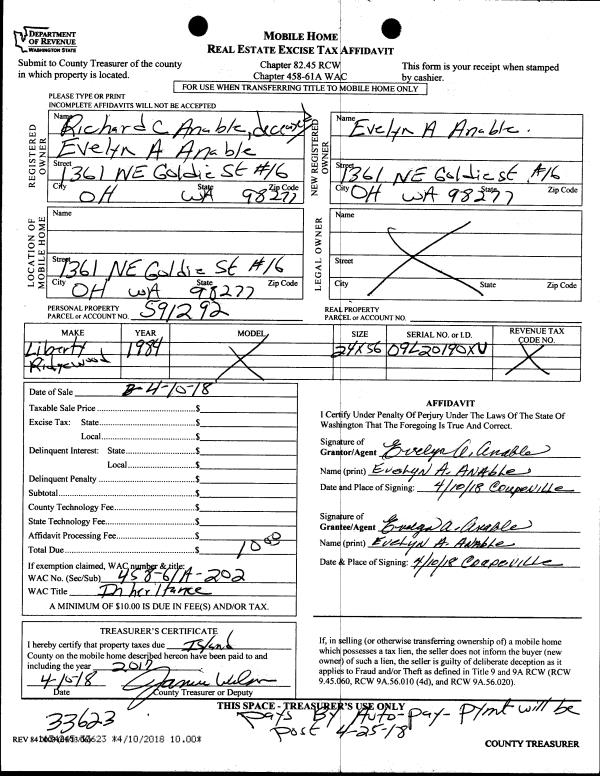 DEPARTMENT
OF REVENUE
WASHINGTON STATE
MOBILE HOME
REAL ESTATE EXCISE TAX AFFIDAVIT
Submit to County Treasurer of the county
in which property is located.
Chapter 82.45 RCW
Chapter 458-61A WAC
This form is your receipt when stamped
by cashier.
FOR USE WHEN TRANSFERRING TITLE TO MOBILE HOME ONLY
PLEASE TYPE OR PRINT
INCOMPLETE AFFIDAVITS WILL NOT BE ACCEPTED
REGISTERED
OWNER
Name
Richard C Anable,
Evelyn A Anable
Street
1361 NE Goldie St #16
City State Zip Code
OH WA 98277
NEW REGISTERED
OWNER
Name
Evelyn A Anable.
Street
1361 NE Goldie St #16
City State Zip Code
OH WA 98277
LOCATION OF
MOBILE HOME
Name
Street
1361 NE Goldie St #16
City State Zip Code
OH WA 98277
LEGAL OWNER
Name
Street
City State Zip Code
PERSONAL PROPERTY
PARCEL or ACCOUNT NO. 591292
REAL PROPERTY
PARCEL or ACCOUNT NO.
MAKE YEAR MODEL SIZE SERIAL NO. or I.D. REVENUE TAX
CODE NO.
Liberty 1984 X 24x56 09L20190XU X
Ridgewood
Date of Sale 4-10-18
Taxable Sale Price $
Excise Tax: State $
Local $
Delinquent Interest: State $
Local $
Delinquent Penalty $
Subtotal $
County Technology Fee $
State Technology Fee $
Affidavit Processing Fee $
Total Due $ 10.00
If exemption claimed, WAC number & title:
WAC No. (Sec/Sub) 458-61A-202
WAC Title Inheritance
A MINIMUM OF $10.00 IS DUE IN FEE(S) AND/OR TAX.
AFFIDAVIT
I Certify Under Penalty Of Perjury Under The Laws Of The State Of
Washington That The Foregoing Is True And Correct.
Signature of
Grantor/Agent Evelyn A. Anable
Name (print) Evelyn A. Anable
Date and Place of Signing: 4/10/18 Coupeville
Signature of
Grantee/Agent Evelyn A. Anable
Name (print) Evelyn A. Anable
Date & Place of Signing: 4/10/18 Coupeville
TREASURER'S CERTIFICATE
I hereby certify that property taxes due Island
County on the mobile home described hereon have been paid to and
including the year 2017
4-10-18
Date County Treasurer or Deputy
If, in selling (or otherwise transferring ownership of) a mobile home
which possesses a tax lien, the seller does not inform the buyer (new
owner) of such a lien, the seller is guilty of deliberate deception as it
applies to Fraud and/or Theft as defined in Title 9 and 9A RCW (RCW
9.45.060, RCW 9A.56.010 (4d), and RCW 9A.56.020).
THIS SPACE - TREASURER'S USE ONLY
33623
pays By Auto-pay - Pymt will be
post 4-25-18
REV 84 33623 *4/10/2018 10.00*
COUNTY TREASURER